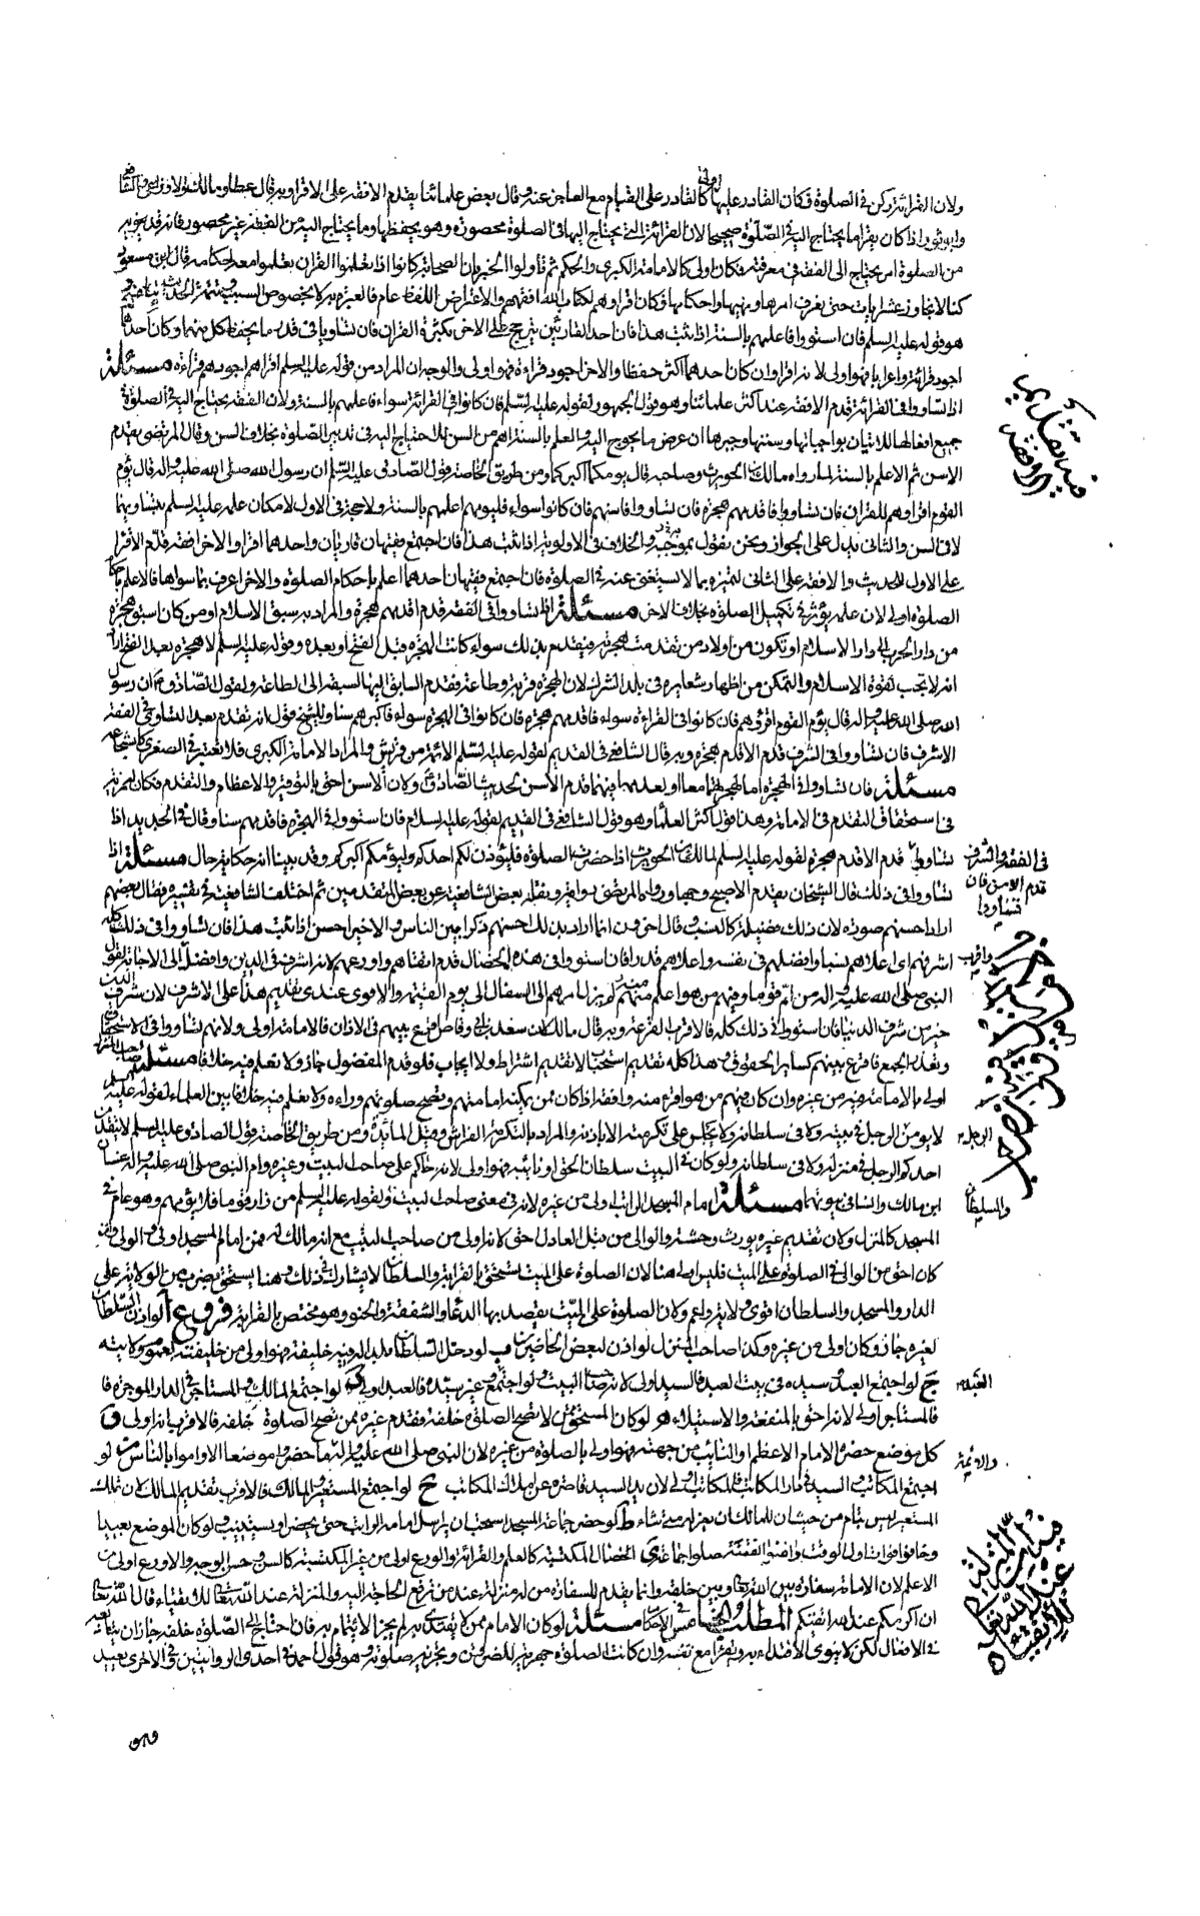 ولان القرائة ركن في الصلوة فكان القادر عليها كالقادر على القيام مع العاجز عنه وقال بعض علمائنا يقدم الافقه على الاقرا وبه قال عطا ومالك والاوزاعي والشافعي
وابو ثور اذا كان يقرا ما يحتاج اليه في الصلوة صحيحا لان القرائة التي يحتاج اليها في الصلوة محصورة وهو يحفظها وما يحتاج اليه من الفقه غير محصور فانه قد ينوبه
من الصلوة امر يحتاج الى الفقه في معرفته فكان اولى كالامامة الكبرى والحكم ثم تاولوا الخبر بان الصحابة كانوا اذا تعلموا القران تعلموا معه احكامه قال ابن مسعود
كنا لا نجاوز عشر ايات حتى نعرف امرها ونهيها واحكامها فكان اقراوهم لكتاب الله افقههم والاعتراض اللفظ عام فالعبرة به لا بخصوص السبب وتتمة الحديث
هو قوله عليه السلم فان استووا فاعلمهم بالسنة اذا ثبت هذا فان احد القارئين يترجح على الاخر بكثرة القران فان تساويا في قدر ما يحفظ كل منهما وكان احدهما
اجود قرائة واعرابا فهو اولى لانه اقرا وان كان احدهما اكثر حفظا والاخر اجود قراءة فهو اولى والوجه ان المراد من قوله عليه السلم اقراهم اجودهم قراءة مسئلة
اذا تساووا في القرائة قدم الافقه عند اكثر علمائنا وهو قول الجمهور لقوله عليه السلم فان كانوا في القرائة سواء فاعلمهم بالسنة ولان الفقه يحتاج اليه في الصلوة
جميع افعالها للاتيان بواجباتها وسننها وجبرها ان عرض ما يحوج اليه والعلم بالسنة اهم من السن للاحتياج اليه في تدبير الصلوة بخلاف السن وقال المرتضى يقدم
الاسن ثم الاعلم بالسنة لما رواه مالك بن الحويرث وصاحبه قال يومكما اكبركما ومن طريق الخاصة قول الصادق عليه السلم ان رسول الله صلى الله عليه واله قال يؤم
القوم اقراوهم للقران فان تساووا فاقدمهم هجرة فان تساووا فاسنهم فان كانوا سواء فليومهم اعلمهم بالسنة ولا حجة في الاول لامكان علمه عليه السلم بتساويهما
لا في السن والثاني يدل على الجواز ونحن نقول بموجبه والخلاف في الاولوية اذا ثبت هذا فان اجتمع فقيهان قاريان واحدهما اقرا والاخر افقه قدم الاقرا
على الاول للحديث والافقه على الثاني لتميزه بما لا يستغنى عنه في الصلوة فان اجتمع فقيهان احدهما اعلم باحكام الصلوة والاخر اعرف بما سواها فالاعلم باحكام
الصلوة اولى لان علمه يؤثر في تكميل الصلوة بخلاف الاخر مسئلة اذا تساووا في الفقه قدم اقدمهم هجرة والمراد به سبق الاسلام او من كان اسبق هجرة
من دار الحرب الى دار الاسلام او تكون من اولاد من تقدمت هجرته فيقدم بذلك سواء كانت الهجرة قبل الفتح او بعده وقوله عليه السلم لا هجرة بعد الفتح اراد
انه لا تجب لقوة الاسلام والتمكن من اظهار شعايره في بلد الشرك لان الهجرة قربة وطاعة فقدم السابق اليها لسبقه الى الطاعة ولقول الصادق ع ان رسول
الله صلى الله عليه واله قال يؤم القوم اقرؤهم فان كانوا في القراءة سواء فاقدمهم هجرة فان كانوا في الهجرة سواء فاكبرهم سنا وللشيخ قول انه تقدم بعد التساوي في الفقه
الاشرف فان تساووا في الشرف قدم الاقدم هجرة وبه قال الشافعي في القديم لقوله عليه السلم الائمة من قريش والمراد الامامة الكبرى فلا تعتبر في الصغرى كالشجاعة
مسئلة فان تساووا في الهجرة اما لهجرتهما معا او لعدمها بينهما قدم الاسن لحديث الصادق ع ولان الاسن احق بالتوقير والاعظام والتقدم فكان له مزية
في استحقاق التقدم في الامامة وهذا قول اكثر العلماء وهو قول الشافعي في القديم لقوله عليه السلام فان استووا في الهجرة فاقدمهم سنا وقال في الجديد اذا
تساووا في الفقه والشرف قدم الاسن فان تساووا قدم الاقدم هجرة لقوله عليه السلم لمالك بن الحويرث اذا حضرت الصلوة فليؤذن لكم احدكم وليؤمكم اكبركم وقد بينا انه حكاية حال مسئلة اذا
تساووا في ذلك قال الشيخان يقدم الاصبح وجها ورواه المرتضى رواية ونقله بعض الشافعية عن بعض المتقدمين ثم اختلف الشافعية في تفسيره فقال بعضهم
اراد احسنهم صورة لان ذلك فضيلة كالنسب وقال اخرون انما اراد بذلك احسنهم ذكرا بين الناس والاخير احسن اذا ثبت هذا فان تساووا في ذلك كله
اشرفهم اي اعلاهم نسبا وافضلهم في نفسه واعلاهم قدرا فان استووا في هذه الخصال قدم اتقاهم واورعهم لانه اشرف في الدين وافضل واقرب الى الاجابة لقول
النبي صلى الله عليه واله من ام قوما وفيهم من هو اعلم منه لم يزل امرهم الى السفال الى يوم القيمة والاقوى عندي تقديم هذا على الاشرف لان شرف الدين
خير من شرف الدنيا فان استووا في ذلك كله فالاقرب القرعة وبه قال مالك لان سعد بن ابي وقاص اقرع بينهم في الاذان فالامامة اولى ولانهم تساووا في الاستحقاق
وتعذر الجمع فاقرع بينهم كساير الحقوق وهذا كله تقديم استحباب لا تقديم اشتراط ولا ايجاب فلو قدم المفضول جاز ولا نعلم فيه خلافا مسئلة صاحب المنزل
اولى بالامامة فيه من غيره وان كان فيهم من هو اقرء منه وافقه اذا كان ممن يمكنه امامتهم وتصح صلوتهم وراءه ولا نعلم فيه خلافا بين العلماء لقوله عليه السلم
لا يومن الرجل الرجل في بيته ولا في سلطانه ولا يجلس على تكرمته الا باذنه والمراد بالتكرمة الفراش وقيل المائدة ومن طريق الخاصة قول الصادق عليه السلم لا يتقدمن
احدكم الرجل في منزله ولا في سلطانه ولو كان في البيت سلطان الحق او نائبه فهو اولى لانه حاكم على صاحب البيت وغيره وام النبي صلى الله عليه واله عتبان
ابن مالك وانسا في بيوتهما مسئلة امام المسجد الراتب اولى من غيره لانه في معنى صاحب البيت ولقوله عليه السلم من زار قوما فلا يؤمهم وهو عام في
المسجد كالمنزل ولان تقديم غيره يورث وحشة والوالي من قبل العادل احق لانه اولى من صاحب البيت مع انه مالك له فمن امام المسجد اولى والوالي وان
كان احق من الوالي في الصلوة على الميت فليس اولى هنا لان الصلوة على الميت تستحق بالقرابة والسلطان لا يشارك في ذلك وهنا يستحق بضرب من الولاية على
الدار والمسجد والسلطان اقوى ولاية واعم ولان الصلوة على الميت يقصد بها الدعا والشفقة والحنو وهو مختص بالقرابة فروع آ لو اذن السلطان
لغيره جاز وكان اولى من غيره وكذا صاحب المنزل لو اذن لبعض الحاضرين ب لو دخل السلطان بلدا له فيه خليفة فهو اولى من خليفته لعموم ولايته
ج لو اجتمع العبد وسيده في بيت العبد فالسيد اولى لانه صاحب البيت ولو اجتمع وغير سيده فالعبد اولى د لو اجتمع المالك والمستاجر في الدار الموجرة
فالمستاجر اولى لانه احق بالمنفعة والاستيلاء ه لو كان المستحق ممن لا تصح الصلوة خلفه فقدم غيره ممن تصح الصلوة خلفه فالاقرب انه اولى و
كل موضع حضره الامام الاعظم او النائب من جهته فهو اولى بالصلوة من غيره لان النبي صلى الله عليه واله والائمة ما حضروا موضعا الا واموا بالناس ز لو
اجتمع المكاتب والسيد في دار المكاتب فالمكاتب اولى لان يد السيد قاصرة عن املاك المكاتب ح لو اجتمع المستعير والمالك فالاقرب تقديم المالك لان تلك
المستعير ليس بتام من حيث ان للمالك ان يعزله متى شاء ط لو حضر جماعة المسجد استحب ان يراسل امامه الراتب حتى يحضر او يستنيب ولو كان الموضع بعيدا
وخافوا فوات اول الوقت وامنوا الفتنة صلوا جماعة ي الخصال المكتسبة كالعلم والقرائة والورع اولى من غير المكتسبة كالسن وحسن الوجه والاورع اولى من
الاعلم لان الامامة سفارة بين الله تعا وبين خلقه وانما يقدم للسفارة من له منزلة عند من ترفع الحاجة اليه والمنزلة عند الله تعا للاتقياء قال الله تعا
ان اكرمكم عند الله اتقيكم المطلب الخامس في الاحكام مسئلة لو كان الامام ممن لا يقتدى به لم يجز الايتمام به فان احتاج الى الصلوة خلفه جاز ان يتابعه
في الافعال لكن لا ينوي الاقتداء به ويقرا مع نفسه وان كانت الصلوة جهرية للضرورة ويجزيه صلوته وهو قول احمد في احدى الروايتين وفي الاخرى يعيد